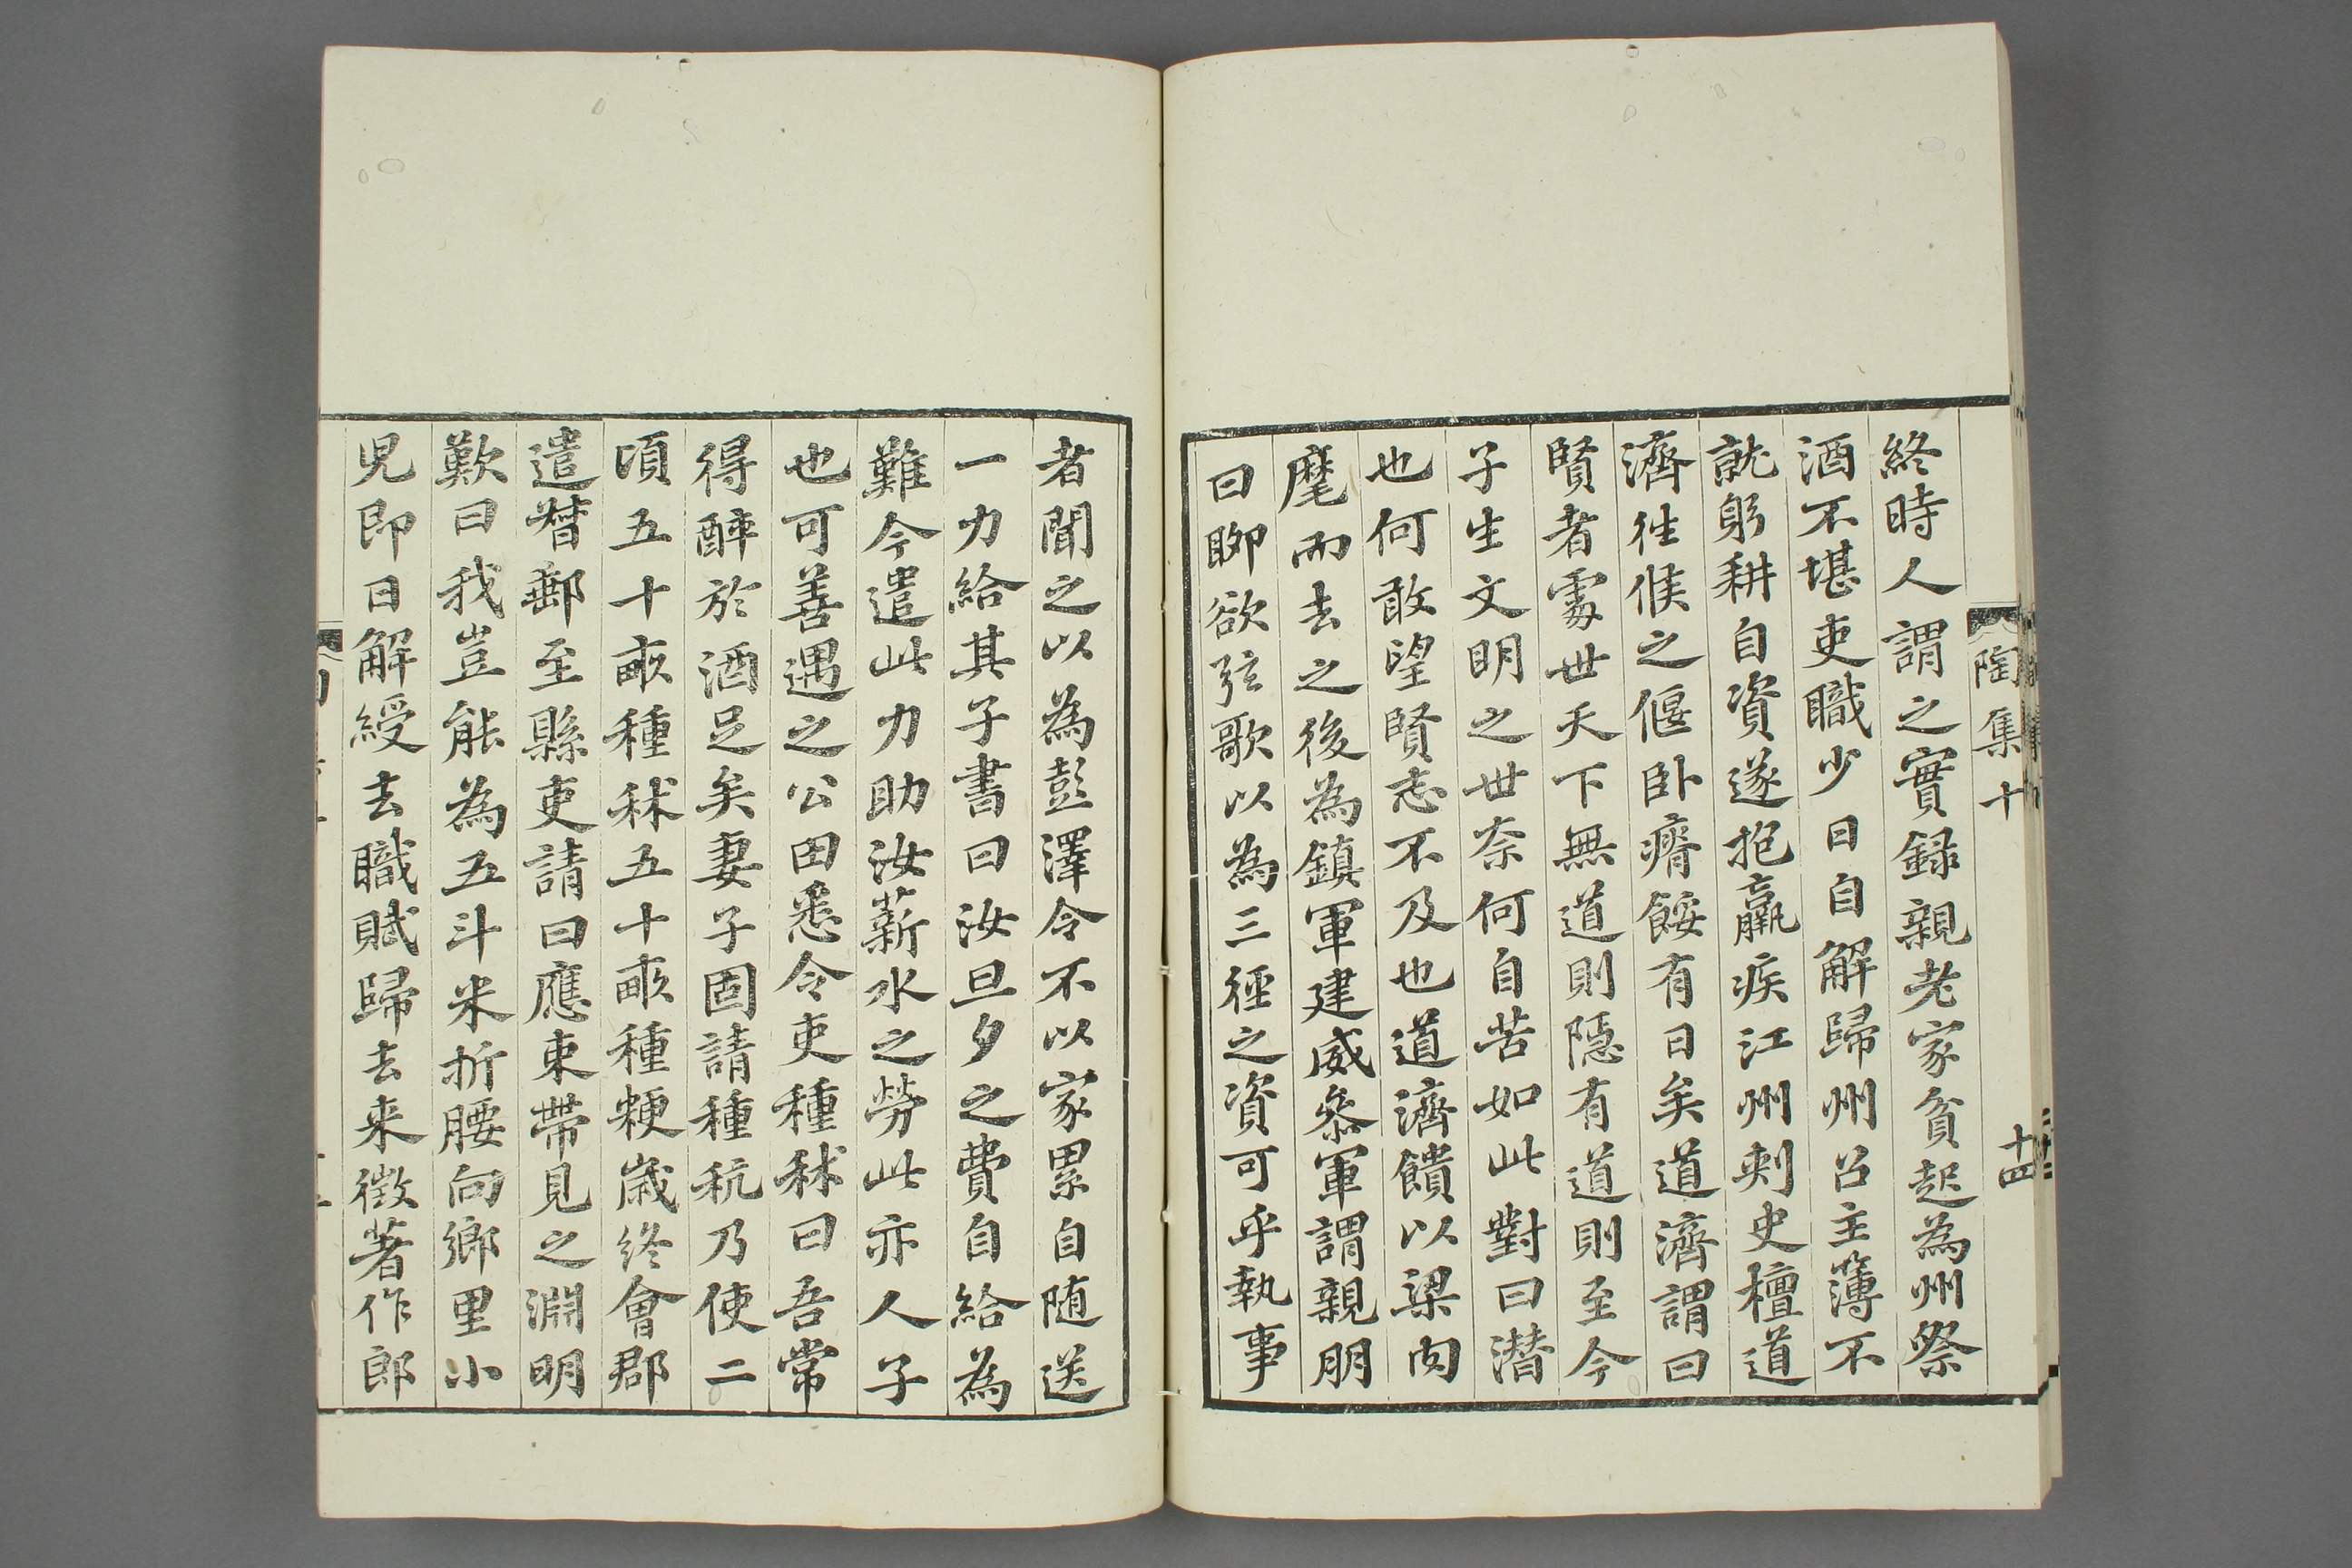 陶集十
十四
終時人謂之實録親老家貧起為州祭
酒不堪吏職少日自解歸州召主簿不
就躬耕自資遂抱羸疾江州刺史檀道
濟往候之偃卧瘠餒有日矣道濟謂曰
賢者處世天下無道則隱有道則至今
子生文明之世奈何自苦如此對曰潜
也何敢望賢志不及也道濟饋以梁肉
麾而去之後為鎮軍建威叅軍謂親朋
曰聊欲弦歌以為三徑之資可乎執事
者聞之以為彭澤令不以家累自随送
一力給其子書曰汝旦夕之費自給為
難今遣此力助汝薪水之勞此亦人子
也可善遇之公田悉令吏種秫曰吾常
得醉於酒足矣妻子固請種秔乃使二
頃五十畝種秫五十畝種粳歲終會郡
遣督郵至縣吏請曰應束帶見之淵明
歎曰我豈能為五斗米折腰向鄉里小
兒即日解綬去職賦歸去来徵著作郎